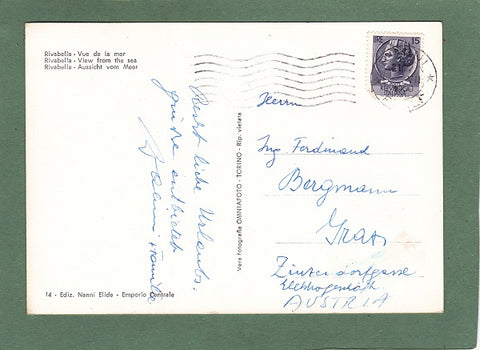 Rivabella - Vue de la mer
Rivabella - View from the sea
Rivabella - Aussicht vom Meer
Recht liebe Urlaubs-
grüße entbietet
Familie
14 - Ediz. Nanni Elide - Emporio Centrale
Vera fotografia OMNIAFOTO - TORINO - Rip. vietata
15
Herrn
Ing Ferdinand
Bergmann
Graz
Zinzendorfgasse
AUSTRIA